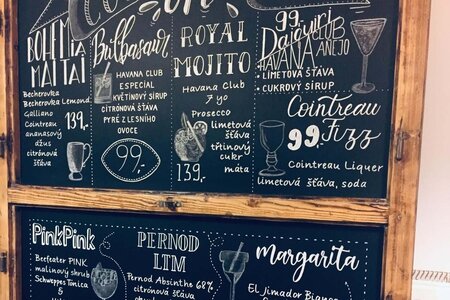 BOHEMIA
MAI TAI
Becherovka
Becherovka Lemond
Galliano
Cointreau
ananasový
džus
citrónová
šťáva
139,-
Bulbasaur
HAVANA CLUB
ESPECIAL
KVĚTINOVÝ SIRUP
CITRÓNOVÁ ŠŤÁVA
PYRÉ Z LESNÍHO
OVOCE
99,-
ROYAL
MOJITO
Havana Club
7 yo
Prosecco
limetová
šťáva
třtinový
cukr
máta
139,-
99,-
Daiquiri
HAVANA CLUB
AÑEJO
• LIMETOVÁ ŠŤÁVA
• CUKROVÝ SIRUP
Cointreau
Fizz
99,-
Cointreau Liquer
limetová šťáva, soda
PinkPink
Beefeater PINK
malinový shrub
Schweppes Tonica
&
PERNOD
LTM
Pernod Absinthe 68%
citrónová šťáva
Margarita
El Jimador Blanco